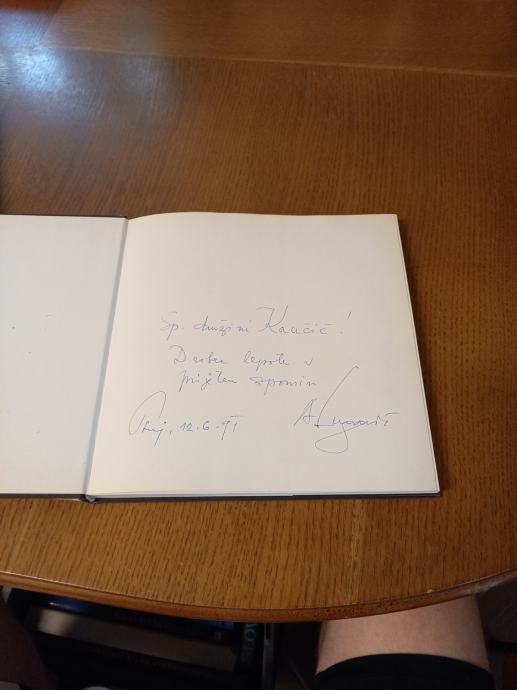 Sp. družini Kaučič!
Drobec lepote v
prijeten spomin
Ptuj, 12.6.91 A. Lugarič